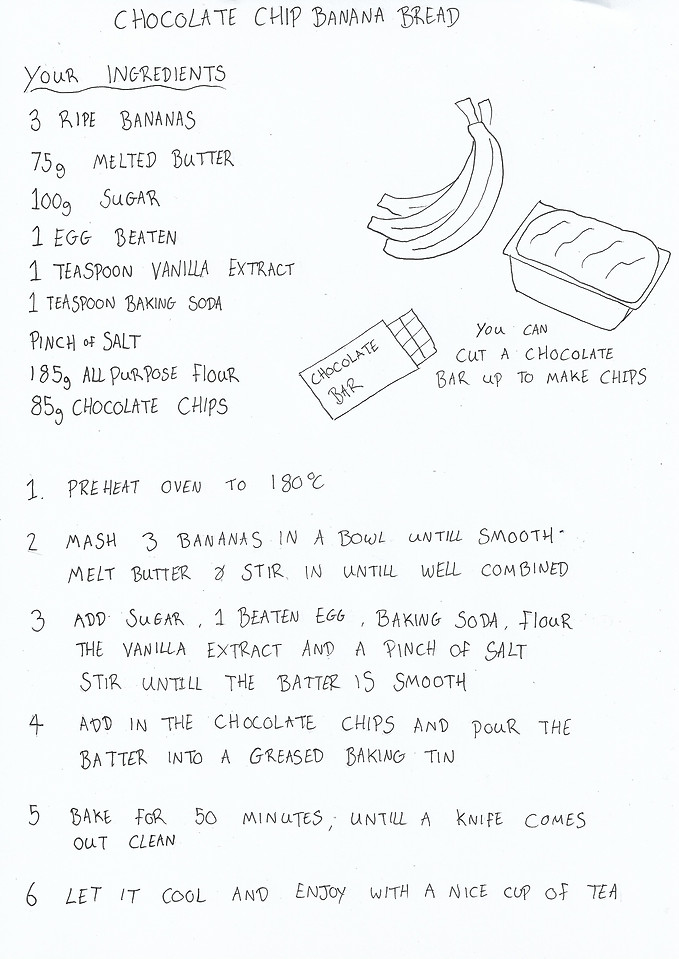 CHOCOLATE CHIP BANANA BREAD
YOUR INGREDIENTS
3 RIPE BANANAS
75g MELTED BUTTER
100g SUGAR
1 EGG BEATEN
1 TEASPOON VANILLA EXTRACT
1 TEASPOON BAKING SODA
PINCH of SALT
185g ALL PURPOSE FLOUR
85g CHOCOLATE CHIPS
CHOCOLATE
BAR
YOU CAN
CUT A CHOCOLATE
BAR UP TO MAKE CHIPS
1. PREHEAT OVEN TO 180°C
2 MASH 3 BANANAS IN A BOWL UNTILL SMOOTH-
MELT BUTTER & STIR IN UNTILL WELL COMBINED
3 ADD SUGAR, 1 BEATEN EGG, BAKING SODA, FLOUR
THE VANILLA EXTRACT AND A PINCH OF SALT
STIR UNTILL THE BATTER IS SMOOTH
4 ADD IN THE CHOCOLATE CHIPS AND POUR THE
BATTER INTO A GREASED BAKING TIN
5 BAKE FOR 50 MINUTES, UNTILL A KNIFE COMES
OUT CLEAN
6 LET IT COOL AND ENJOY WITH A NICE CUP OF TEA